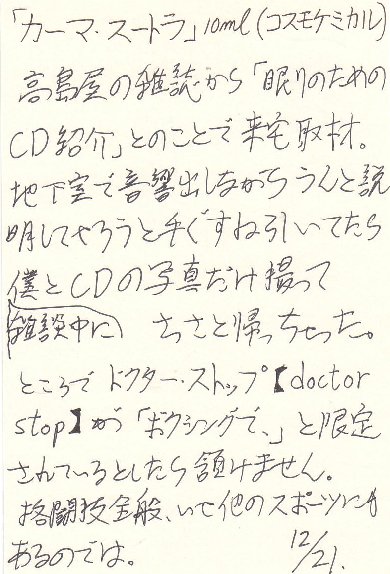 「カーマ・スートラ」10ml(コスモケミカル)
高島屋の雑誌から「眠りのための
CD紹介」とのことで来宅取材。
地下室で音響出しながらうんと説
明してやろうと手ぐすね引いてたら
僕とCDの写真だけ撮って
雑談中に さっさと帰っちゃった。
ところでドクター・ストップ【doctor
stop】が「ボクシングで、」と限定
されているとしたら頷けません。
格闘技全般、いや他のスポーツにも
あるのでは。 12/21.